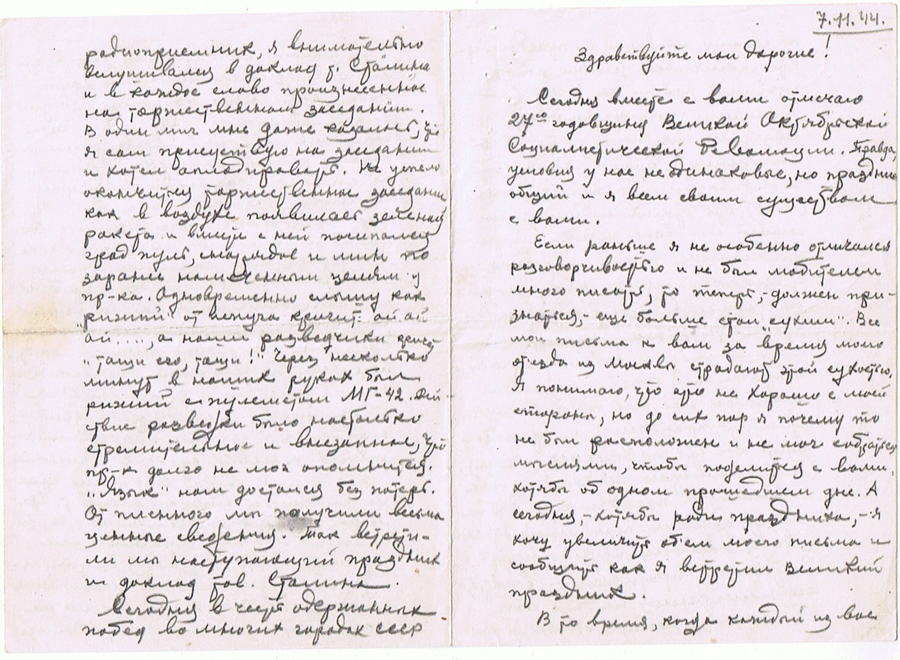 7.11.44.
Здравствуйте мои дорогие!
Сегодня вместе с вами отмечаю
27ую годовщину Великой Октябрьской
Социалистической Революции. Правда,
условия у нас не одинаковые, но праздник
общий и я всем своим существом
с вами.
Если раньше я не особенно отличался
разговорчивостью и не был любителем
много писать, то теперь,- должен при-
знаться,- еще больше стал "сухим". Все
мои письма к вам за время моего
отъезда из Москвы страдают этой сухостью.
Я понимаю, что это не хорошо с моей
стороны, но до сих пор я почему то
не был расположен и не мог собраться
мыслями, чтобы поделится с вами,
хотябы об одном прошедшем дне. А
сегодня,- хотябы ради праздника,- я
хочу увеличить объем моего письма и
сообщить как я встретил великий
праздник.
В то время, когда каждый из вас
радиоприемник, я внимательно
вслушивался в доклад т. Сталина
и в каждое слово произнесенное
на торжественном заседании.
В один миг мне даже казалось, что
я сам присутствую на заседании
и хотел аплодировать. Не успело
окончится торжественное заседание
как в воздухе появилась зеленая
ракета и вместе с ней посыпался
град пуль, снарядов и мин по
заранее намеченным целям у
пр-ка. Одновременно слышу как
"рыжий" от испуга кричит: ай ай
ай...., а наши разведчики
"тащи его, тащи!" Через несколько
минут в наших руках был
рыжий с пулеметом МГ-42. Дей-
ствие разведки было настолько
стремительное и внезапное, что
пр-к долго не мог опомнится.
"Язык" нам достался без потерь.
От пленного мы получили весьма
ценные сведения. Так встрети-
ли мы наступающий праздник
и доклад тов. Сталина.
Сегодня в честь одержанных
побед во многих городах СССР